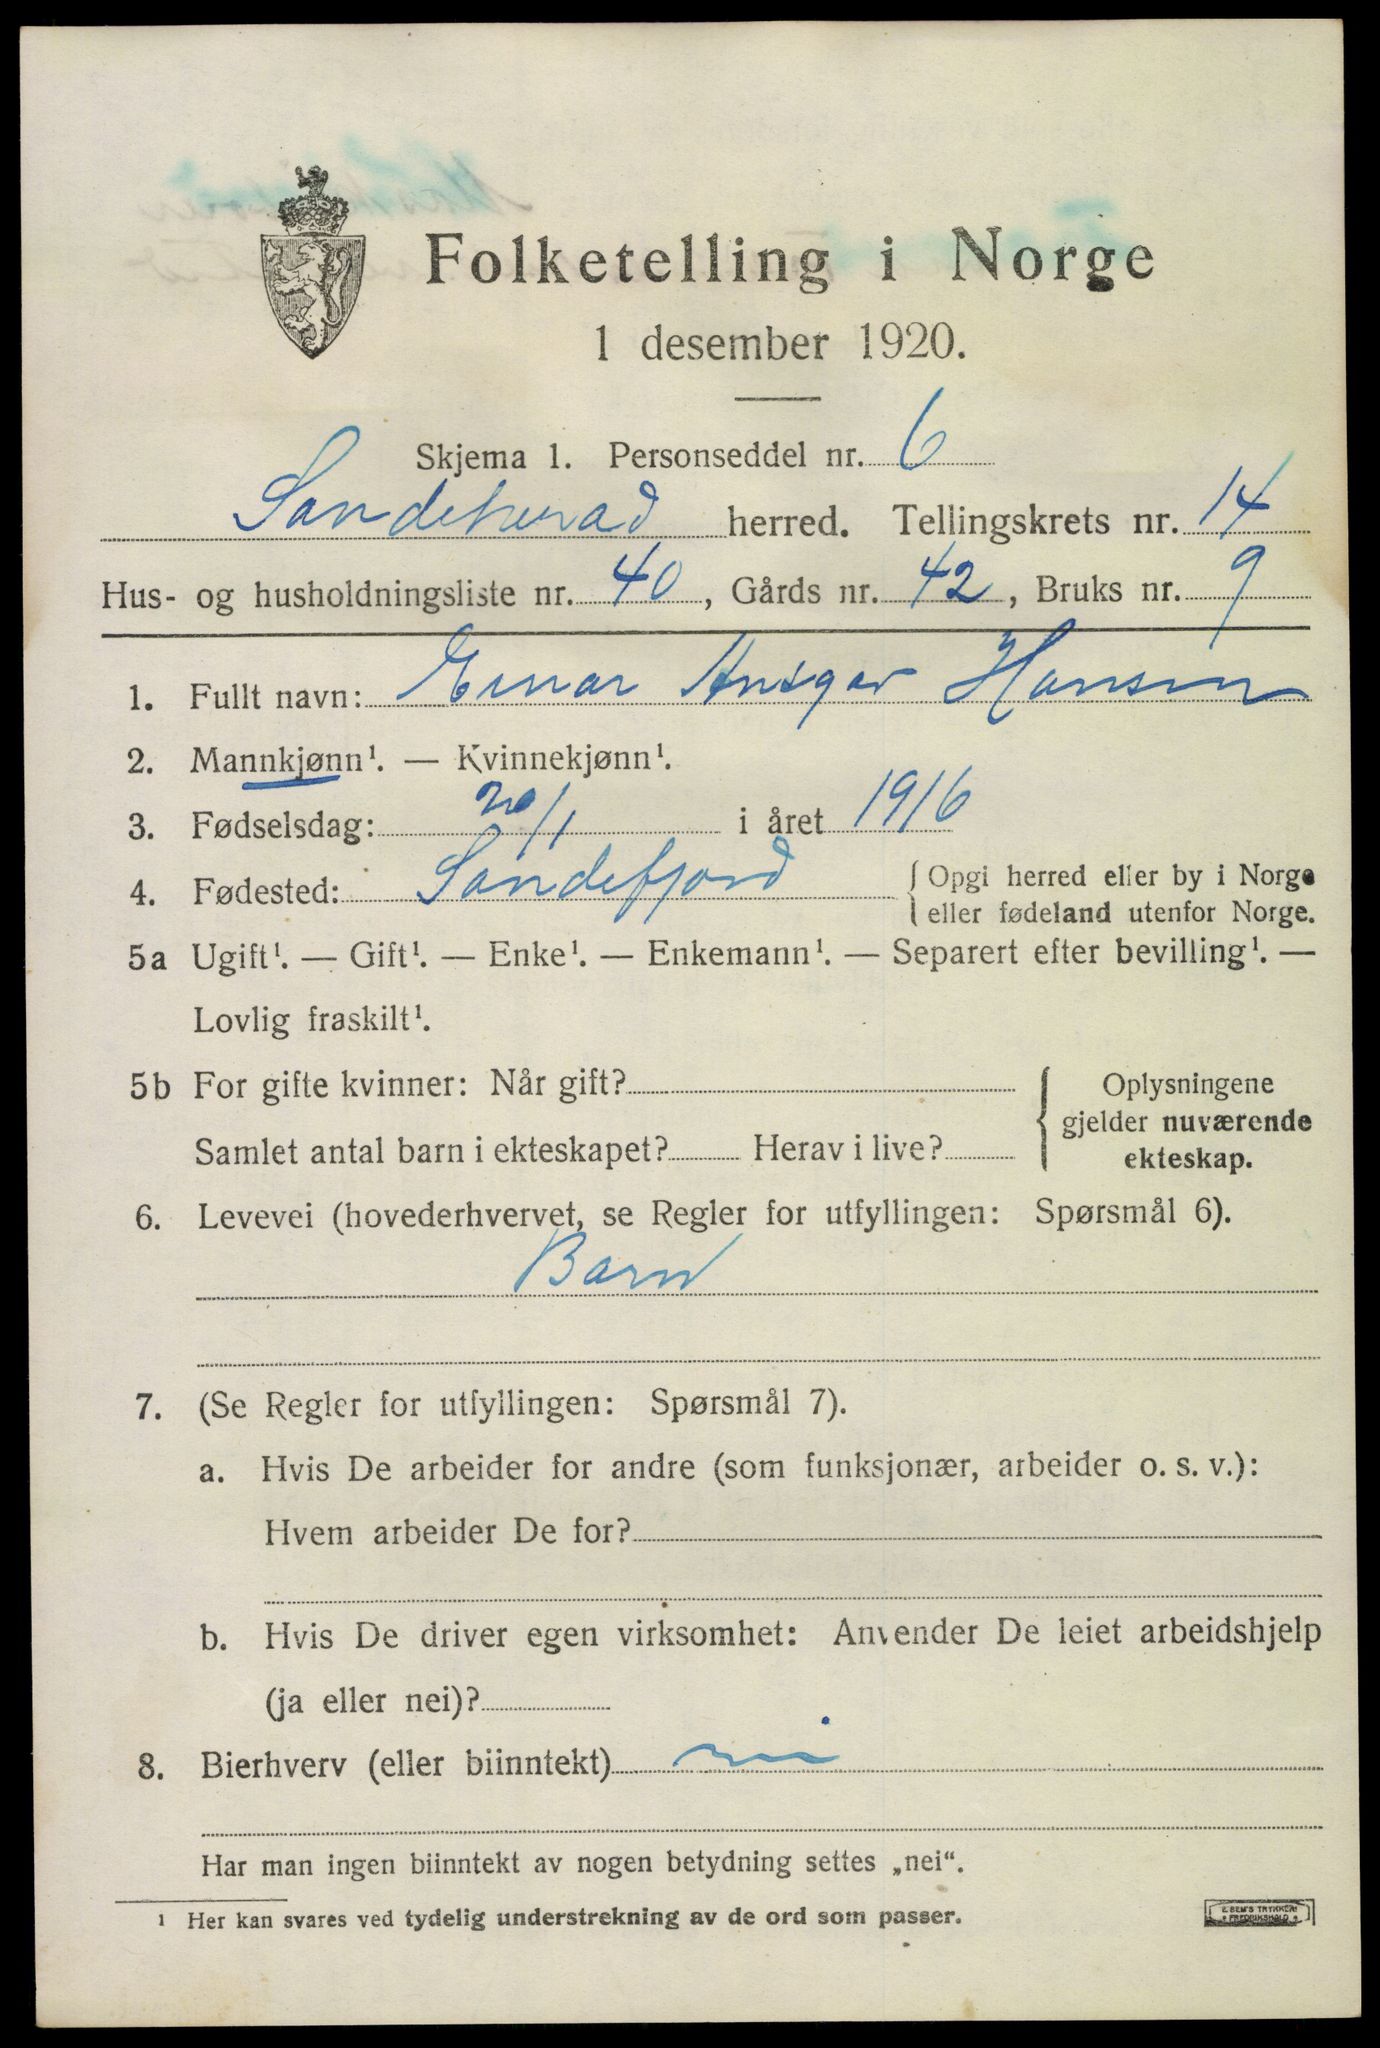 Folketelling i Norge
1 desember 1920.
Skjema 1. Personseddel nr. 6
Sandeherad herred. Tellingskrets nr. 14
Hus- og husholdningsliste nr. 40, Gårds nr. 42, Bruks nr. 9
1. Fullt navn: Einar Ansgar Hansen
2. Mannkjønn¹. — Kvinnekjønn¹.
3. Fødselsdag: 20/1 i året 1916
4. Fødested: Sandefjord { Opgi herred eller by i Norge
eller fødeland utenfor Norge.
5a Ugift¹. — Gift¹. — Enke¹. — Enkemann¹. — Separert efter bevilling¹. —
Lovlig fraskilt¹.
5b For gifte kvinner: Når gift?
Samlet antal barn i ekteskapet? Herav i live?
{ Oplysningene
gjelder nuværende
ekteskap.
6. Levevei (hovederhvervet, se Regler for utfyllingen: Spørsmål 6).
Barn
7. (Se Regler for utfyllingen: Spørsmål 7).
a. Hvis De arbeider for andre (som funksjonær, arbeider o. s. v.):
Hvem arbeider De for?
b. Hvis De driver egen virksomhet: Anvender De leiet arbeidshjelp
(ja eller nei)?
8. Bierhverv (eller biinntekt) nei
Har man ingen biinntekt av nogen betydning settes „nei“.
¹ Her kan svares ved tydelig understrekning av de ord som passer.
E. SEM'S TRYKKERI
FREDRIKSHALD